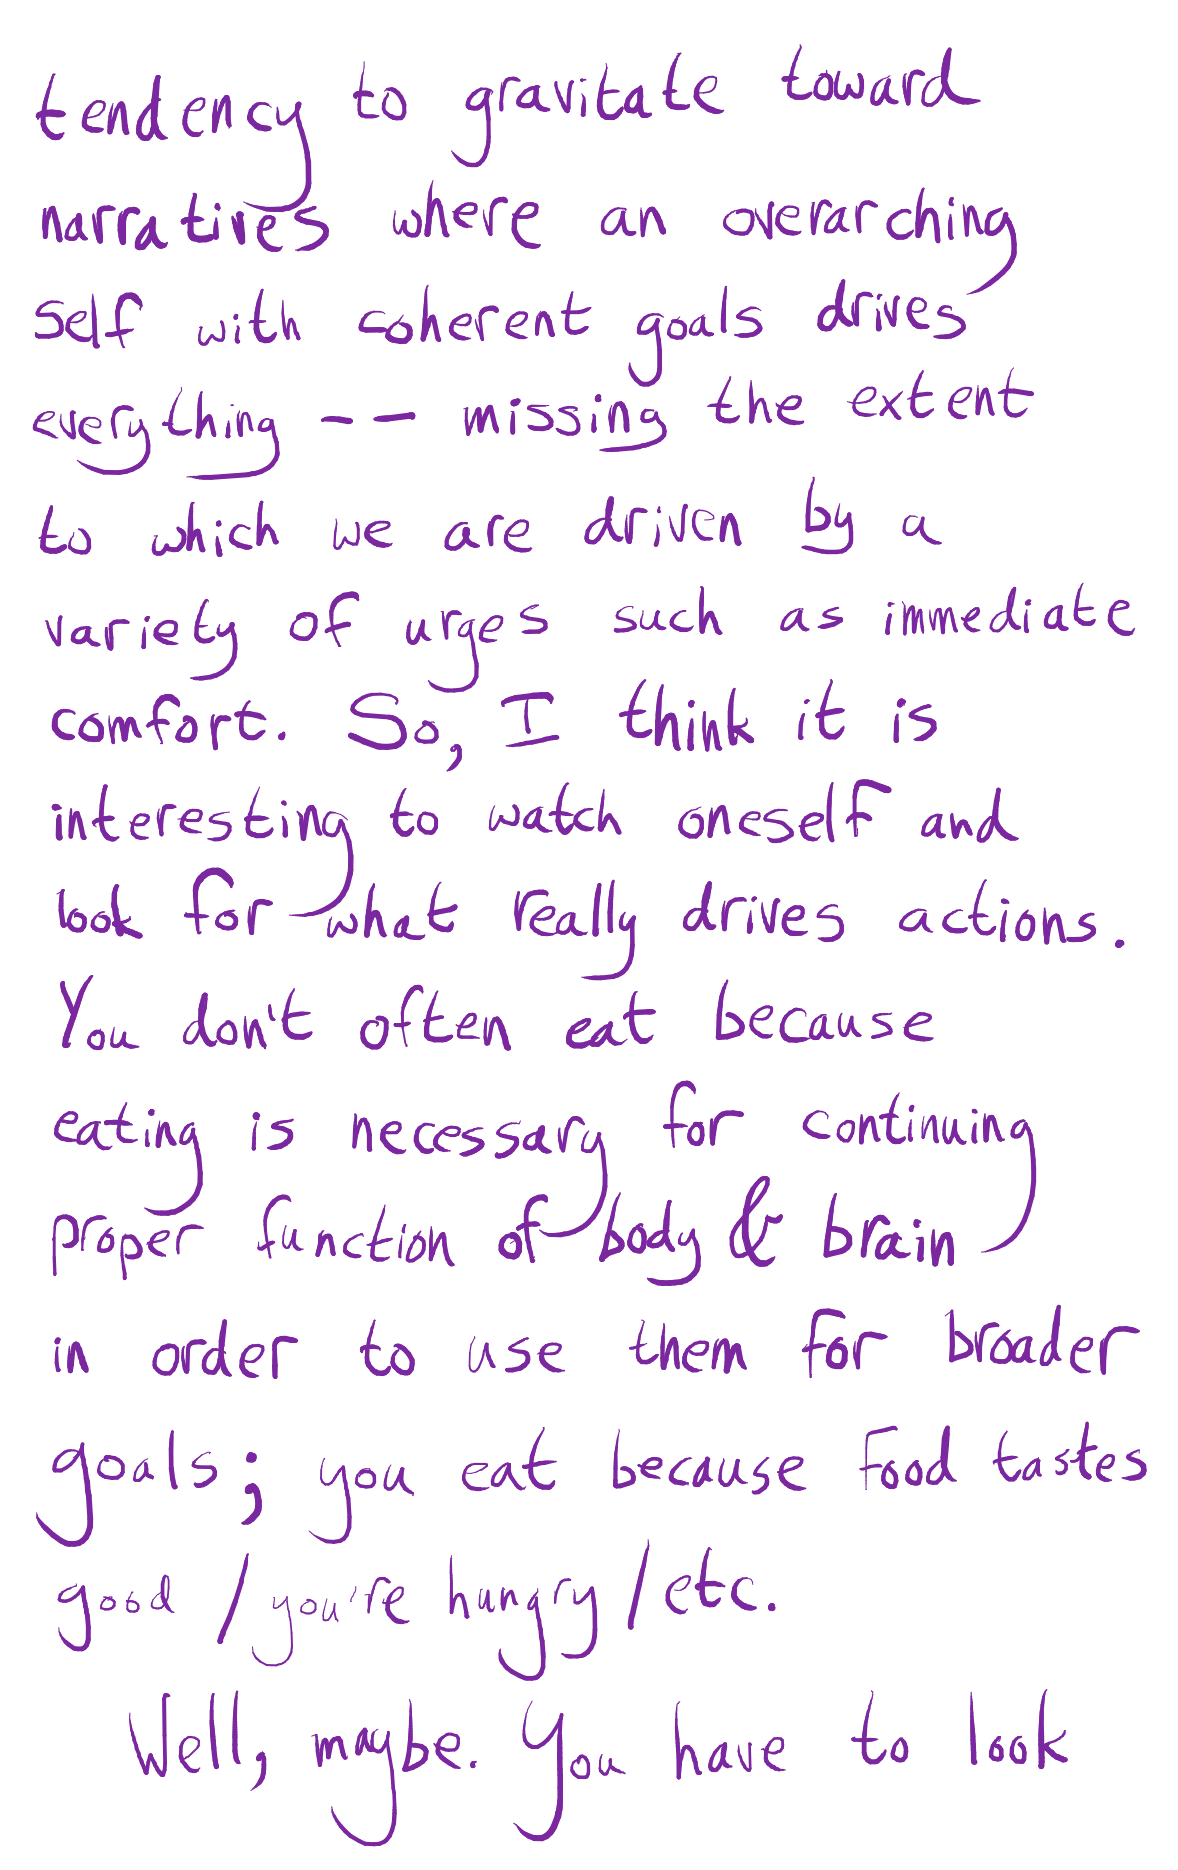 tendency to gravitate toward
narratives where an overarching
self with coherent goals drives
everything -- missing the extent
to which we are driven by a
variety of urges such as immediate
comfort. So, I think it is
interesting to watch oneself and
look for what really drives actions.
You don't often eat because
eating is necessary for continuing
proper function of body & brain
in order to use them for broader
goals; you eat because food tastes
good / you're hungry / etc.
Well, maybe. You have to look